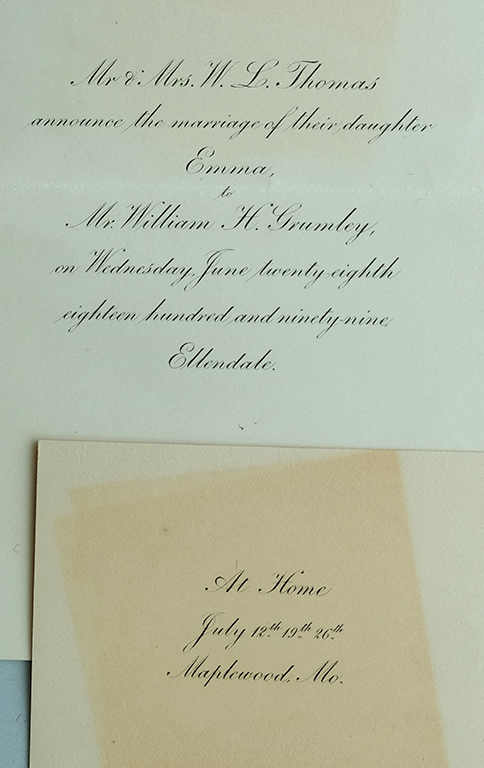 Mr & Mrs. W. L. Thomas
announce the marriage of their daughter
Emma,
to
Mr. William H. Grumley,
on Wednesday, June twenty-eighth
eighteen hundred and ninety-nine,
Ellendale.
At Home
July 12th 19th 26th
Maplewood, Mo.